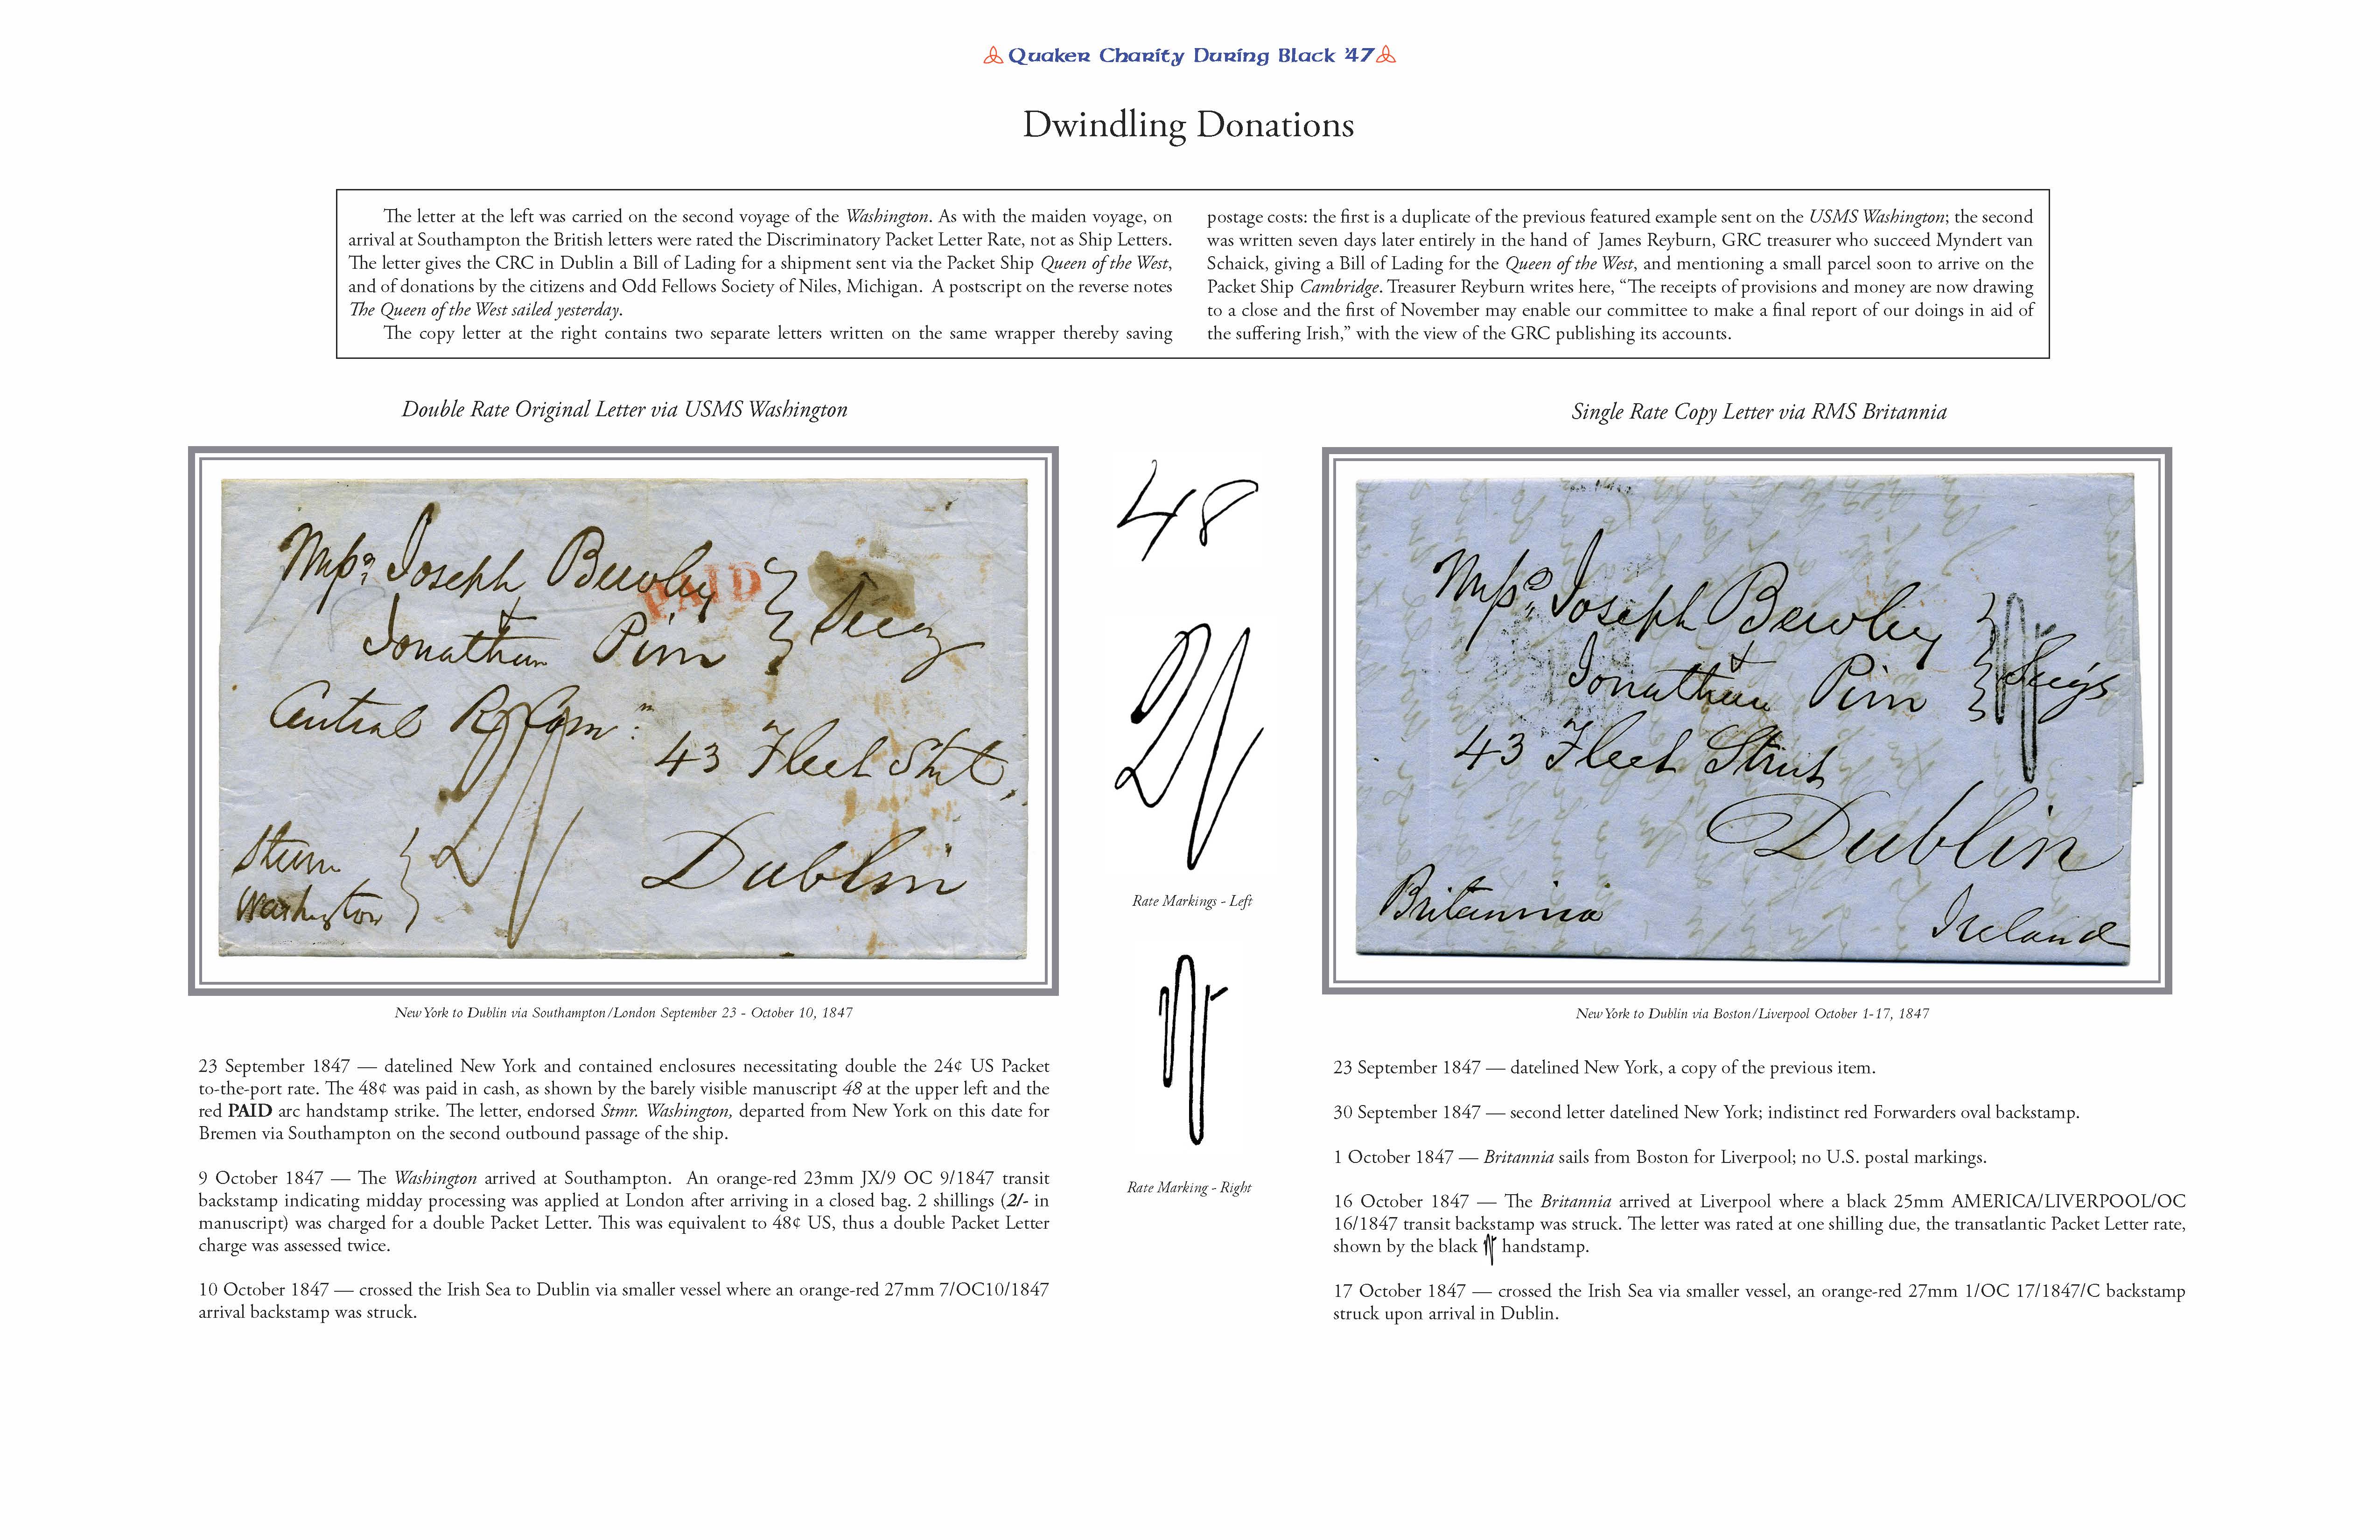 Quaker Charity During Black '47
Dwindling Donations
The letter at the left was carried on the second voyage of the Washington. As with the maiden voyage, on
arrival at Southampton the British letters were rated the Discriminatory Packet Letter Rate, not as Ship Letters.
The letter gives the CRC in Dublin a Bill of Lading for a shipment sent via the Packet Ship Queen of the West,
and of donations by the citizens and Odd Fellows Society of Niles, Michigan. A postscript on the reverse notes
The Queen of the West sailed yesterday.
The copy letter at the right contains two separate letters written on the same wrapper thereby saving
postage costs: the first is a duplicate of the previous featured example sent on the USMS Washington; the second
was written seven days later entirely in the hand of James Reyburn, GRC treasurer who succeed Myndert van
Schaick, giving a Bill of Lading for the Queen of the West, and mentioning a small parcel soon to arrive on the
Packet Ship Cambridge. Treasurer Reyburn writes here, “The receipts of provisions and money are now drawing
to a close and the first of November may enable our committee to make a final report of our doings in aid of
the suffering Irish,” with the view of the GRC publishing its accounts.
Double Rate Original Letter via USMS Washington
Joseph Bewley
PAID
Jonathan Pim
Central
43 Fleet
2/
Dublin
Washington
New York to Dublin via Southampton/London September 23 - October 10, 1847
23 September 1847 — datelined New York and contained enclosures necessitating double the 24¢ US Packet
to-the-port rate. The 48¢ was paid in cash, as shown by the barely visible manuscript 48 at the upper left and the
red PAID arc handstamp strike. The letter, endorsed Stmr. Washington, departed from New York on this date for
Bremen via Southampton on the second outbound passage of the ship.
9 October 1847 — The Washington arrived at Southampton. An orange-red 23mm JX/9 OC 9/1847 transit
backstamp indicating midday processing was applied at London after arriving in a closed bag. 2 shillings (2/- in
manuscript) was charged for a double Packet Letter. This was equivalent to 48¢ US, thus a double Packet Letter
charge was assessed twice.
10 October 1847 — crossed the Irish Sea to Dublin via smaller vessel where an orange-red 27mm 7/OC10/1847
arrival backstamp was struck.
48
2/
Rate Markings - Left
Rate Marking - Right
Single Rate Copy Letter via RMS Britannia
Joseph Bewley
Jonathan Pim
43 Fleet Street
Dublin
Britannia
Ireland
New York to Dublin via Boston/Liverpool October 1-17, 1847
23 September 1847 — datelined New York, a copy of the previous item.
30 September 1847 — second letter datelined New York; indistinct red Forwarders oval backstamp.
1 October 1847 — Britannia sails from Boston for Liverpool; no U.S. postal markings.
16 October 1847 — The Britannia arrived at Liverpool where a black 25mm AMERICA/LIVERPOOL/OC
16/1847 transit backstamp was struck. The letter was rated at one shilling due, the transatlantic Packet Letter rate,
shown by the black handstamp.
17 October 1847 — crossed the Irish Sea via smaller vessel, an orange-red 27mm 1/OC 17/1847/C backstamp
struck upon arrival in Dublin.